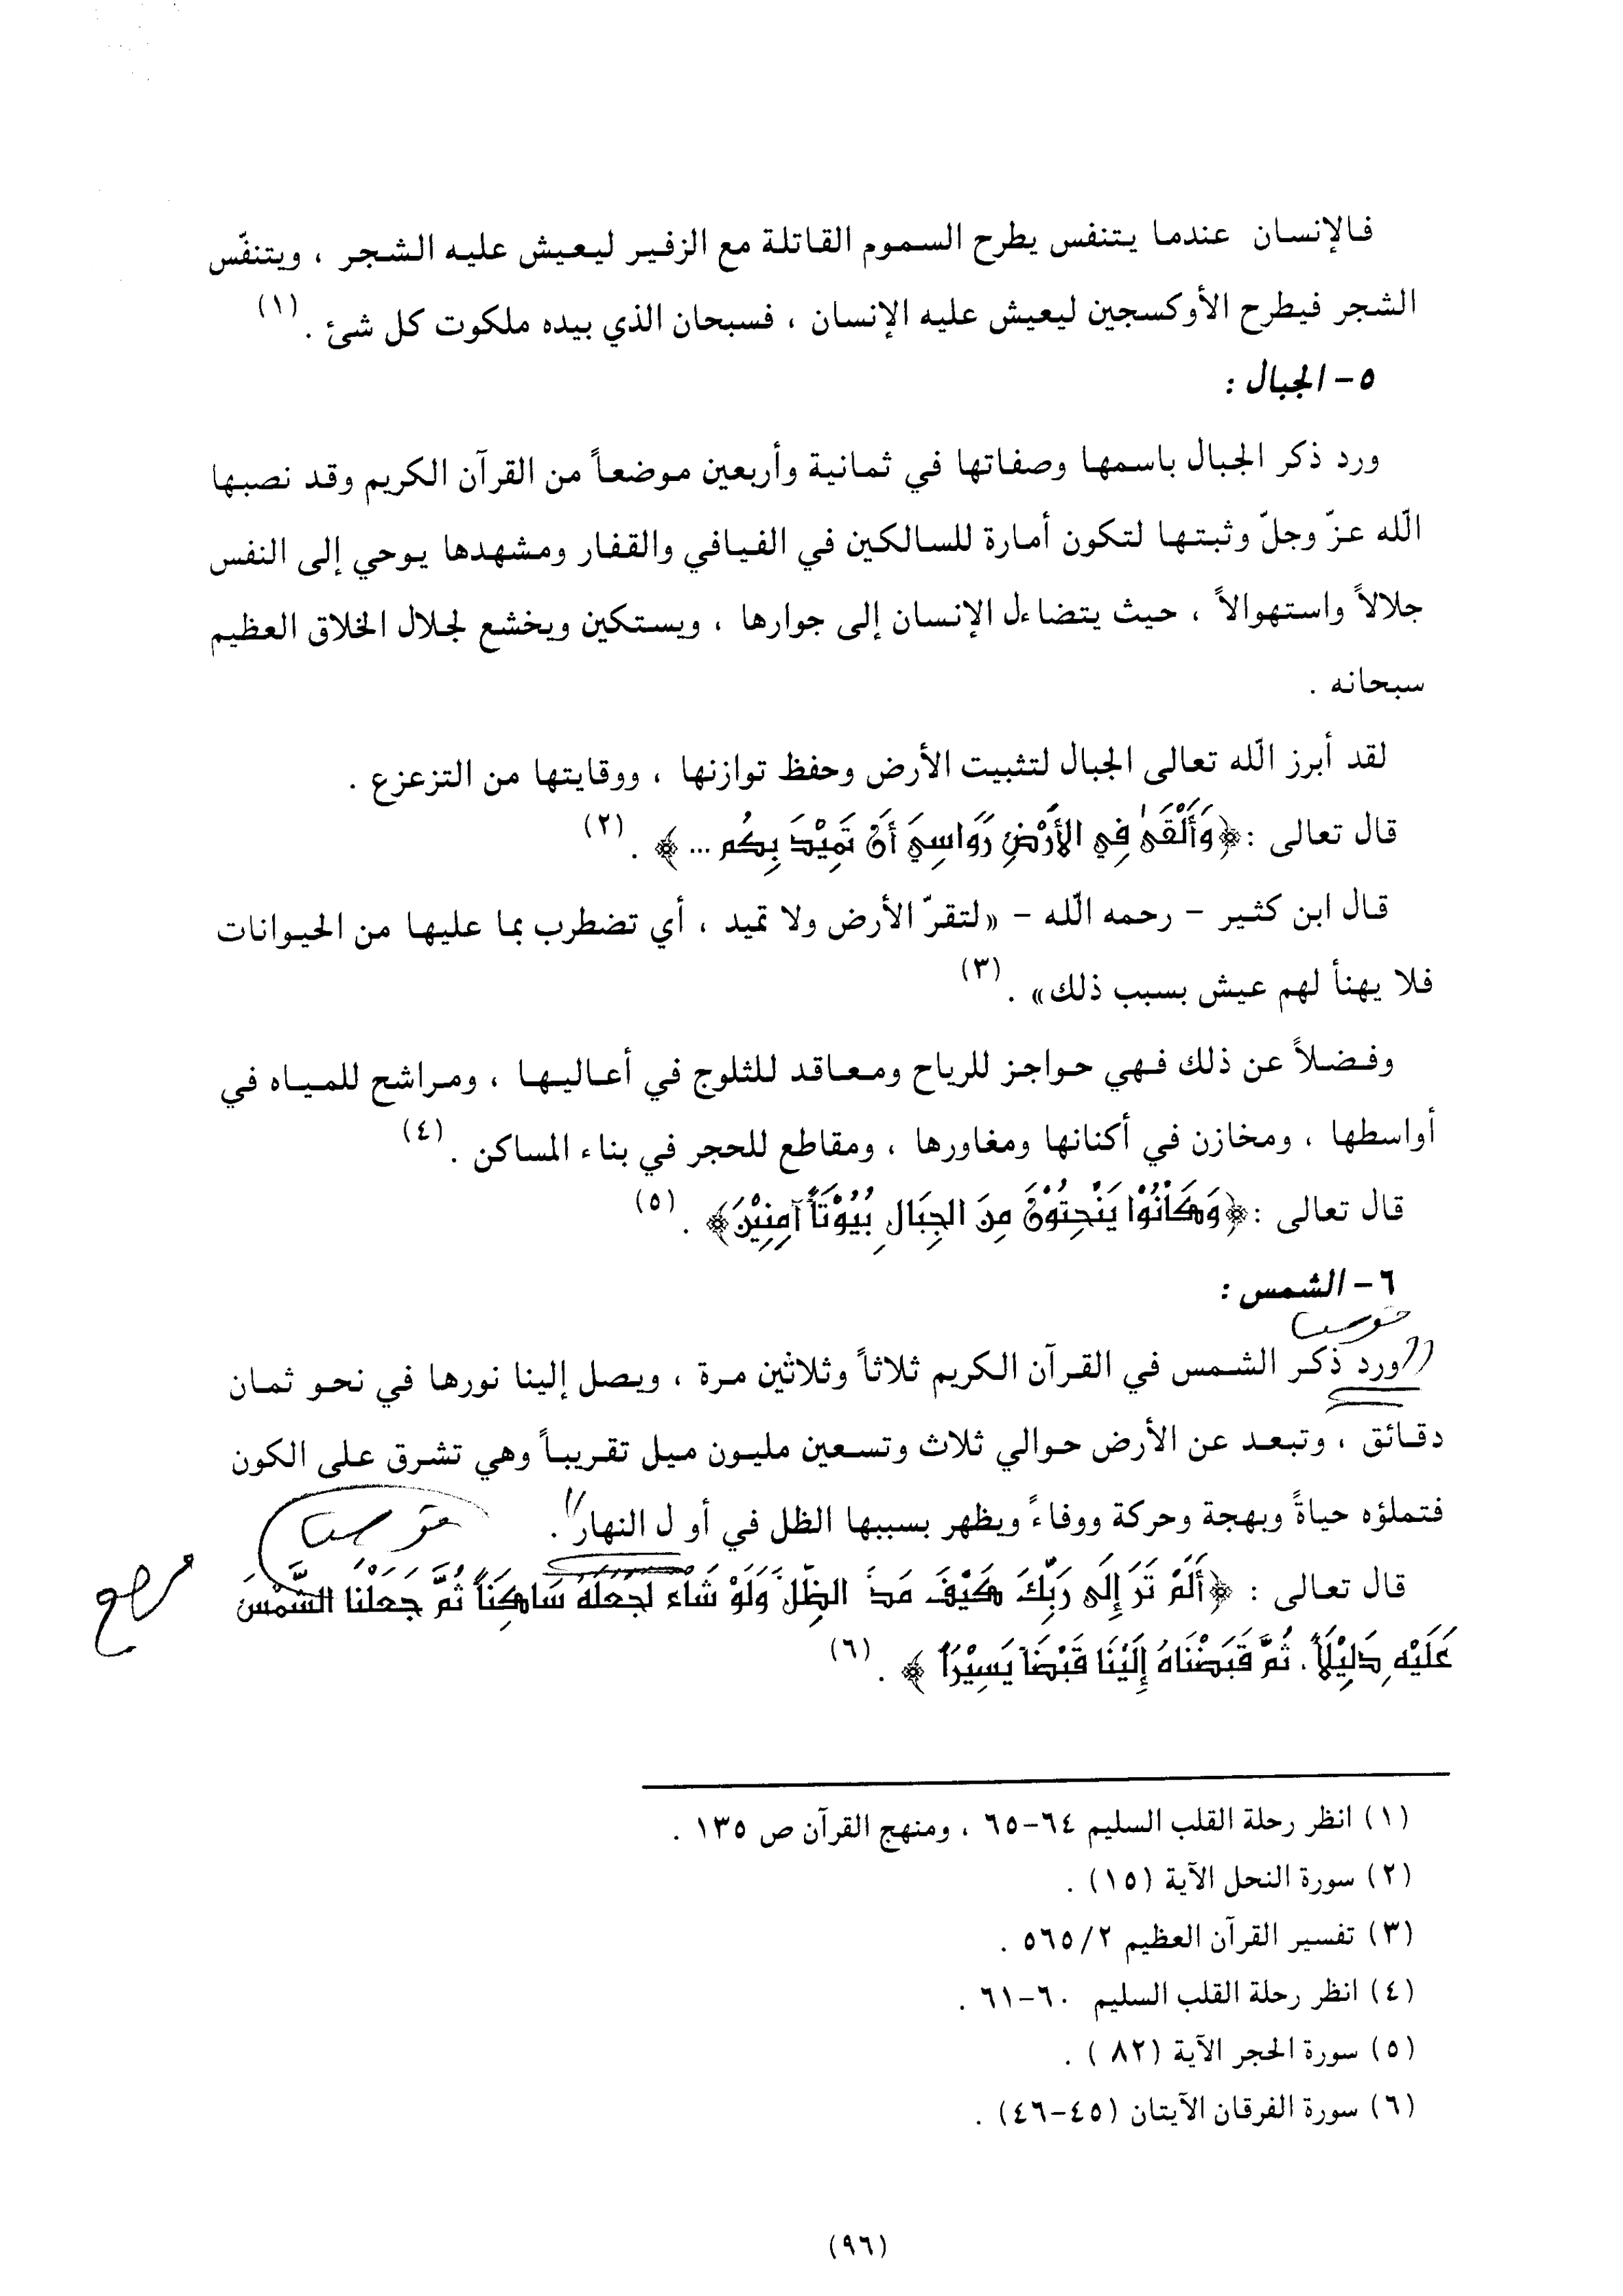 فالإنسان عندما يتنفس يطرح السموم القاتلة مع الزفير ليعيش عليه الشجر ، ويتنفّس
الشجر فيطرح الأوكسجين ليعيش عليه الإنسان ، فسبحان الذي بيده ملكوت كل شئ . (١)
٥- الجبال :
ورد ذكر الجبال باسمها وصفاتها في ثمانية وأربعين موضعاً من القرآن الكريم وقد نصبها
الّله عزّ وجلّ وثبتها لتكون أمارة للسالكين في الفيافي والقفار ومشهدها يوحي إلى النفس
جلالاً واستهوالاً ، حيث يتضاءل الإنسان إلى جوارها ، ويستكين ويخشع لجلال الخلاق العظيم
سبحانه .
لقد أبرز الّله تعالى الجبال لتثبيت الأرض وحفظ توازنها ، ووقايتها من التزعزع .
قال تعالى : ﴿وَأَلْقَىٰ فِي الأَرْضِ رَوَاسِيَ أَنْ تَمِيْدَ بِكُم ... ﴾ . (٢)
قال ابن كثير - رحمه الّله - «لتقرّ الأرض ولا تميد ، أي تضطرب بما عليها من الحيوانات
فلا يهنأ لهم عيش بسبب ذلك» . (٣)
وفضلاً عن ذلك فهي حواجز للرياح ومعاقد للثلوج في أعاليها ، ومراشح للمياه في
أواسطها ، ومخازن في أكنانها ومغاورها ، ومقاطع للحجر في بناء المساكن . (٤)
قال تعالى : ﴿وَكَانُوْا يَنْحِتُوْنَ مِنَ الجِبَالِ بُيُوْتَاً آمِنِيْنَ﴾ . (٥)
٦- الشمس :
ورد ذكر الشمس في القرآن الكريم ثلاثاً وثلاثين مرة ، ويصل إلينا نورها في نحو ثمان
دقائق ، وتبعد عن الأرض حوالي ثلاث وتسعين مليون ميل تقريباً وهي تشرق على الكون
فتملؤه حياةً وبهجة وحركة ووفاءً ويظهر بسببها الظل في أو ل النهار .
قال تعالى : ﴿أَلَمْ تَرَ إِلَى رَبِّكَ كَيْفَ مَدَّ الظِّلَّ وَلَوْ شَاْءَ لَجَعَلَهُ سَاكِنَاً ثُمَّ جَعَلْنَا الشَّمْسَ
عَلَيْهِ دَلِيْلَاً . ثُمَّ قَبَضْنَاهُ إِلَيْنَا قَبْضَاً يَسِيْرَاً ﴾ . (٦)
(١) انظر رحلة القلب السليم ٦٤-٦٥ ، ومنهج القرآن ص ١٣٥ .
(٢) سورة النحل الآية (١٥) .
(٣) تفسير القرآن العظيم ٥٦٥/٢ .
(٤) انظر رحلة القلب السليم ٦٠-٦١ .
(٥) سورة الحجر الآية (٨٢ ) .
(٦) سورة الفرقان الآيتان (٤٥-٤٦) .
(٩٦)